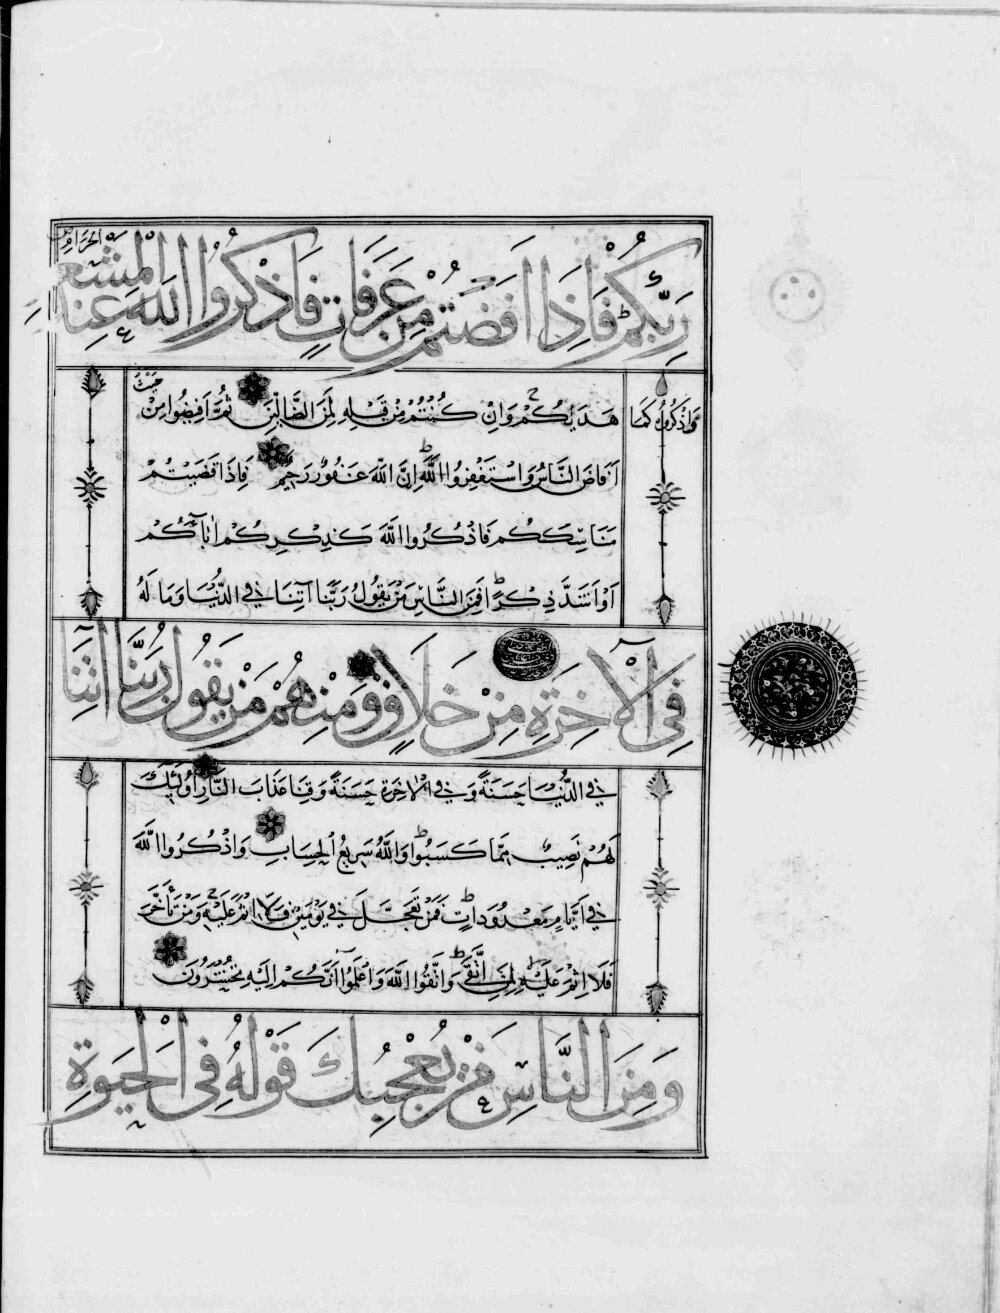 رَبِّكُمْ فَاِذَا اَفَضْتُمْ مِنْ عَرَفَاتٍ فَاذْكُرُوا اللّٰهَ عِنْدَ الْمَشْعَرِ الْحَرَامِ
وَاذْكُرُوهُ كَمَا هَدٰيكُمْ وَاِنْ كُنْتُمْ مِنْ قَبْلِهِ لَمِنَ الضَّالِّينَ ثُمَّ اَفِيضُوا مِنْ حَيْثُ
اَفَاضَ النَّاسُ وَاسْتَغْفِرُوا اللّٰهَ اِنَّ اللّٰهَ غَفُورٌ رَحِيمٌ فَاِذَا قَضَيْتُمْ
مَنَاسِكَكُمْ فَاذْكُرُوا اللّٰهَ كَذِكْرِكُمْ اٰبَآءَكُمْ
اَوْ اَشَدَّ ذِكْرًا فَمِنَ النَّاسِ مَنْ يَقُولُ رَبَّنَا اٰتِنَا فِي الدُّنْيَا وَمَا لَهُ
فِي الْاٰخِرَةِ مِنْ خَلَاقٍ وَمِنْهُمْ مَنْ يَقُولُ رَبَّنَا اٰتِنَا
فِي الدُّنْيَا حَسَنَةً وَفِي الْاٰخِرَةِ حَسَنَةً وَقِنَا عَذَابَ النَّارِ اُولٰٓئِكَ
لَهُمْ نَصِيبٌ مِمَّا كَسَبُوا وَاللّٰهُ سَرِيعُ الْحِسَابِ وَاذْكُرُوا اللّٰهَ
فِي اَيَّامٍ مَعْدُودَاتٍ فَمَنْ تَعَجَّلَ فِي يَوْمَيْنِ فَلَا اِثْمَ عَلَيْهِ وَمَنْ تَاَخَّرَ
فَلَا اِثْمَ عَلَيْهِ لِمَنِ اتَّقٰى وَاتَّقُوا اللّٰهَ وَاعْلَمُوا اَنَّكُمْ اِلَيْهِ تُحْشَرُونَ
وَمِنَ النَّاسِ مَنْ يُعْجِبُكَ قَوْلُهُ فِي الْحَيٰوةِ